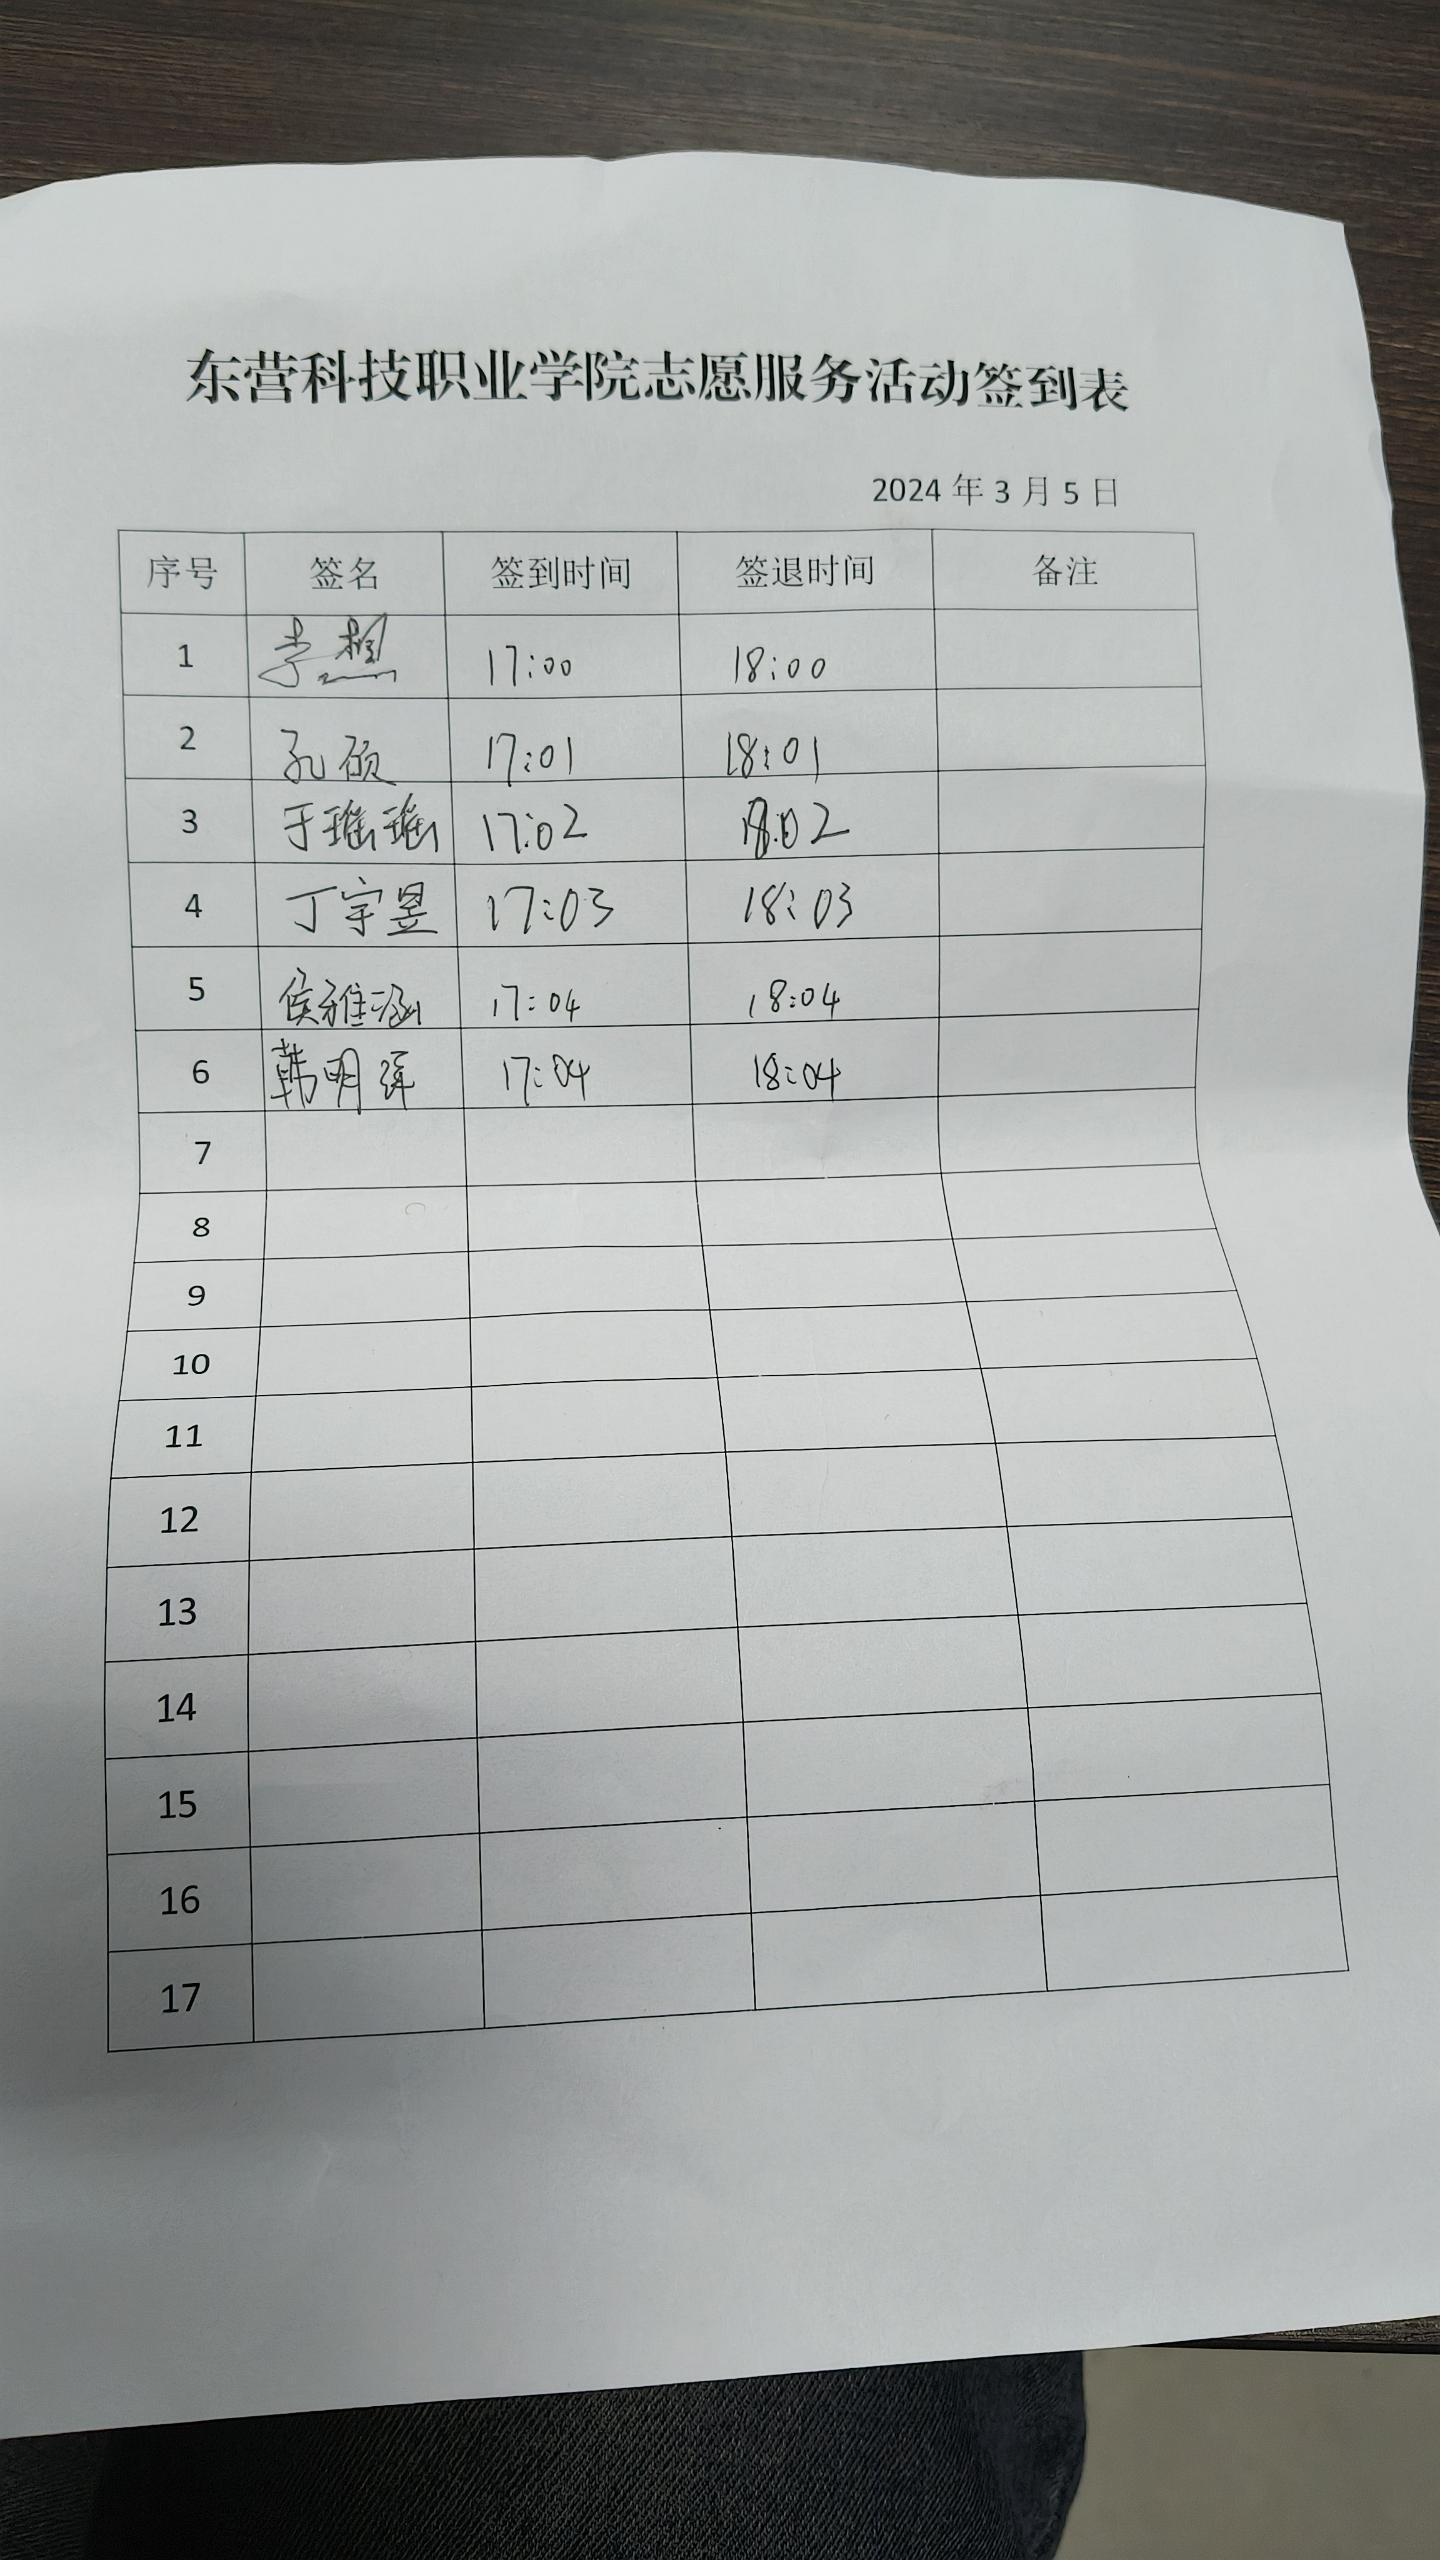 东营科技职业学院志愿服务活动签到表
2024 年 3 月 5 日
序号 签名 签到时间 签退时间 备注
1 李想 17:00 18:00
2 孔硕 17:01 18:01
3 于瑶瑶 17:02 18:02
4 丁宇昱 17:03 18:03
5 侯雅涵 17:04 18:04
6 韩明 17:04 18:04
7
8
9
10
11
12
13
14
15
16
17